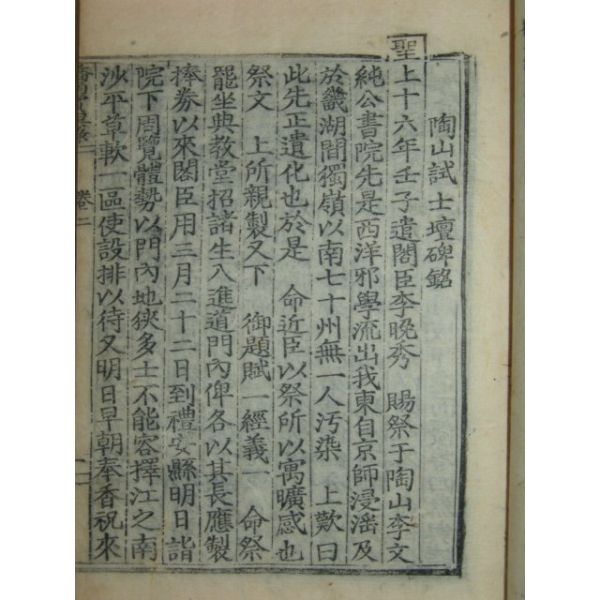 陶山試士壇碑銘
聖上十六年壬子遣閣臣李晚秀 賜祭于陶山李文
純公書院先是西洋邪學流出我東自京師浸淫及
於畿湖間獨嶺以南七十州無一人污染 上歎曰
此先正遺化也於是 命近臣以祭所以寓曠感也
祭文 上所親製又下 御題賦一經義一 命祭
罷坐典教堂招諸生入進道門內俾各以其長應製
捧券以來閣臣用三月二十二日到禮安縣明日詣
院下周覽體勢以門內地狹多士不能容擇江之南
沙平草軟一區使設排以待又明日早朝奉香祝來
卷二